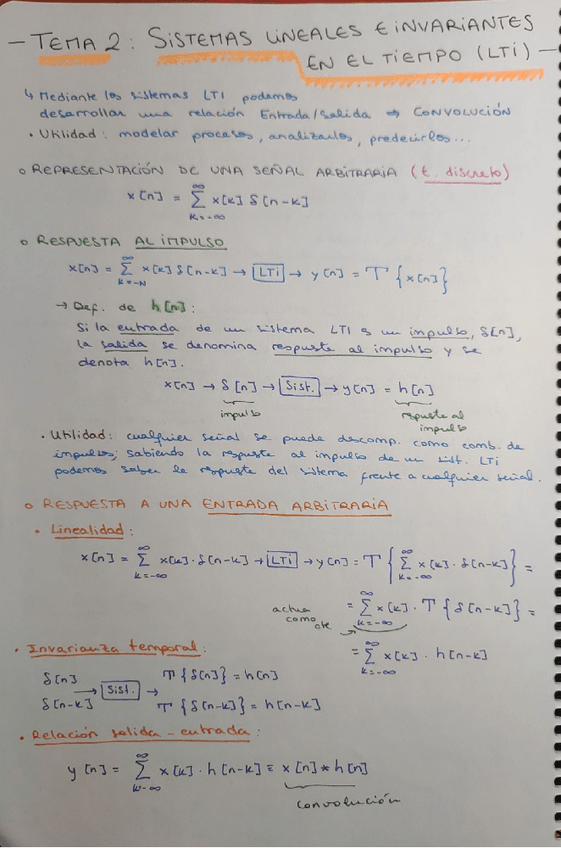 - TEMA 2: SISTEMAS LINEALES E INVARIANTES
EN EL TIEMPO (LTI) -
↳ Mediante los sistemas LTI podemos
desarrollar una relación Entrada/Salida ⇒ CONVOLUCIÓN
• Utilidad: modelar procesos, analizarlos, predecirlos...
o REPRESENTACIÓN DE UNA SEÑAL ARBITRARIA (t. discreto)
x[n] = ∞ Σ k=-∞ x[k] δ[n-k]
o RESPUESTA AL IMPULSO
x[n] = ∞ Σ k=-N x[k] δ[n-k] → LTI → y[n] = T{x[n]}
→ Def. de h[n]:
Si la entrada de un sistema LTI es un impulso, δ[n],
la salida se denomina respuesta al impulso y se
denota h[n].
x[n] → δ[n] → Sist. → y[n] = h[n]
impulso respuesta al
impulso
• Utilidad: cualquier señal se puede descomp. como comb. de
impulsos; sabiendo la respuesta al impulso de un sist. LTI
podemos saber la respuesta del sistema frente a cualquier señal.
o RESPUESTA A UNA ENTRADA ARBITRARIA
• Linealidad:
x[n] = ∞ Σ k=-∞ x[k]·δ[n-k] → LTI → y[n] = T{ ∞ Σ k=-∞ x[k]·δ[n-k] } =
= ∞ Σ k=-∞ x[k]·T{δ[n-k]} =
actua
como
cte
= ∞ Σ k=-∞ x[k]·h[n-k]
• Invarianza temporal:
δ[n] → Sist. → T{δ[n]} = h[n]
δ[n-k] T{δ[n-k]} = h[n-k]
• Relación salida-entrada:
y[n] = ∞ Σ k=-∞ x[k]·h[n-k] = x[n] * h[n]
convolución